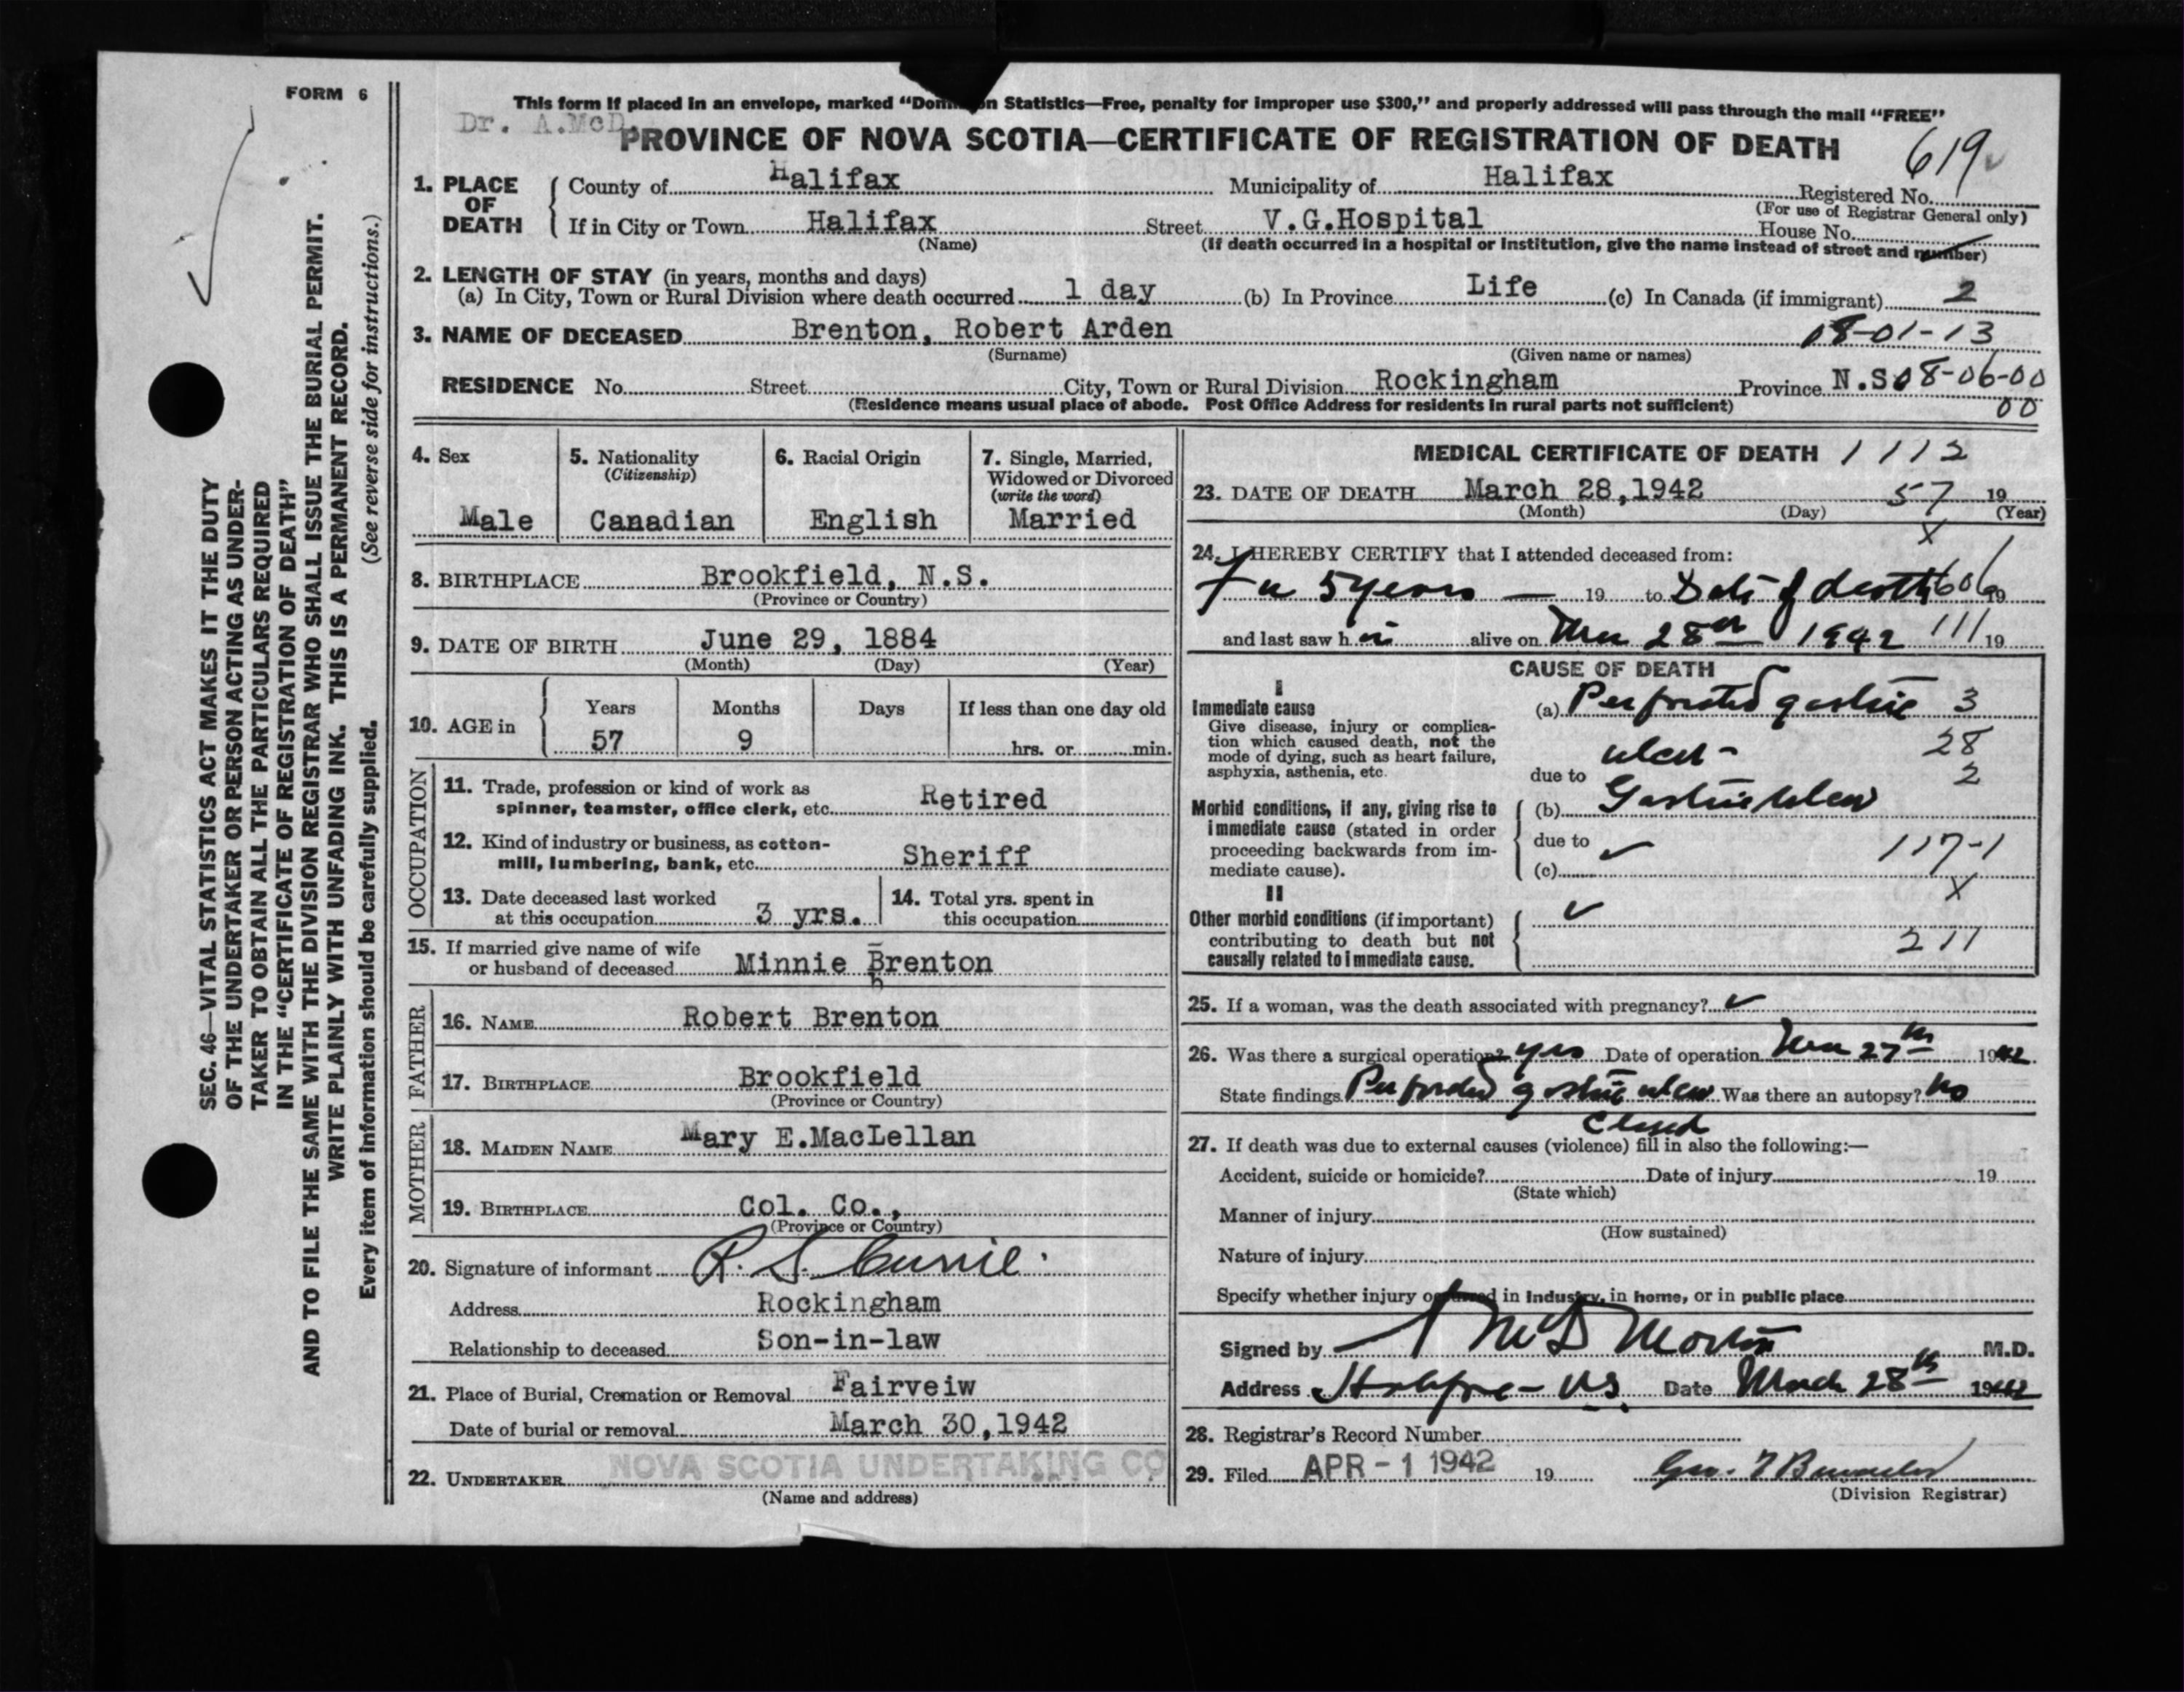 FORM 6
This form if placed in an envelope, marked "Dominion Statistics—Free, penalty for improper use $300," and properly addressed will pass through the mail "FREE"
Dr. A.McD.
PROVINCE OF NOVA SCOTIA—CERTIFICATE OF REGISTRATION OF DEATH
619
1. PLACE OF DEATH
County of Halifax Municipality of Halifax Registered No.
(For use of Registrar General only)
If in City or Town Halifax Street V.G.Hospital House No.
(Name) (If death occurred in a hospital or institution, give the name instead of street and number)
2. LENGTH OF STAY (in years, months and days)
(a) In City, Town or Rural Division where death occurred 1 day (b) In Province Life (c) In Canada (if immigrant) 2
3. NAME OF DECEASED Brenton, Robert Arden 08-01-13
(Surname) (Given name or names)
RESIDENCE No. Street City, Town or Rural Division Rockingham Province N.S. 08-06-00
(Residence means usual place of abode. Post Office Address for residents in rural parts not sufficient) 00
SEC. 46—VITAL STATISTICS ACT MAKES IT THE DUTY
OF THE UNDERTAKER OR PERSON ACTING AS UNDER-
TAKER TO OBTAIN ALL THE PARTICULARS REQUIRED
IN THE "CERTIFICATE OF REGISTRATION OF DEATH"
AND TO FILE THE SAME WITH THE DIVISION REGISTRAR WHO SHALL ISSUE THE BURIAL PERMIT.
WRITE PLAINLY WITH UNFADING INK. THIS IS A PERMANENT RECORD.
Every item of information should be carefully supplied. (See reverse side for instructions.)
4. Sex
Male
5. Nationality
(Citizenship)
Canadian
6. Racial Origin
English
7. Single, Married,
Widowed or Divorced
(write the word)
Married
8. BIRTHPLACE Brookfield, N.S.
(Province or Country)
9. DATE OF BIRTH June 29, 1884
(Month) (Day) (Year)
10. AGE in
Years Months Days If less than one day old
57 9 hrs. or min.
OCCUPATION
11. Trade, profession or kind of work as
spinner, teamster, office clerk, etc. Retired
12. Kind of industry or business, as cotton-
mill, lumbering, bank, etc. Sheriff
13. Date deceased last worked
at this occupation 3 yrs.
14. Total yrs. spent in
this occupation
15. If married give name of wife
or husband of deceased Minnie Brenton
FATHER
16. NAME Robert Brenton
17. BIRTHPLACE Brookfield
(Province or Country)
MOTHER
18. MAIDEN NAME Mary E.MacLellan
19. BIRTHPLACE Col. Co.,
(Province or Country)
20. Signature of informant R. S. Currie
Address Rockingham
Relationship to deceased Son-in-law
21. Place of Burial, Cremation or Removal Fairveiw
Date of burial or removal March 30,1942
22. UNDERTAKER NOVA SCOTIA UNDERTAKING CO
(Name and address)
MEDICAL CERTIFICATE OF DEATH 1112
23. DATE OF DEATH March 28,1942 57 19
(Month) (Day) (Year)
X
24. I HEREBY CERTIFY that I attended deceased from:
5 years — 19 to Date of death 606 19
and last saw h im alive on Mar 28th 1942 111 19
CAUSE OF DEATH
I
Immediate cause
Give disease, injury or complica-
tion which caused death, not the
mode of dying, such as heart failure,
asphyxia, asthenia, etc.
(a) Perforated gastric 3
ulcer - 28
due to 2
Morbid conditions, if any, giving rise to
immediate cause (stated in order
proceeding backwards from im-
mediate cause).
(b) Gastric ulcer
due to 117-1
(c) X
II
Other morbid conditions (if important)
contributing to death but not
causally related to immediate cause.
211
25. If a woman, was the death associated with pregnancy?
26. Was there a surgical operation? yes Date of operation Mar 27th 1942
State findings Perforated gastric ulcer Was there an autopsy? No
Closed
27. If death was due to external causes (violence) fill in also the following:—
Accident, suicide or homicide? Date of injury 19
(State which)
Manner of injury
(How sustained)
Nature of injury
Specify whether injury occurred in industry, in home, or in public place
Signed by A McD Morton M.D.
Address Halifax - N.S. Date March 28th 1942
28. Registrar's Record Number
29. Filed APR - 1 1942 19
(Division Registrar)